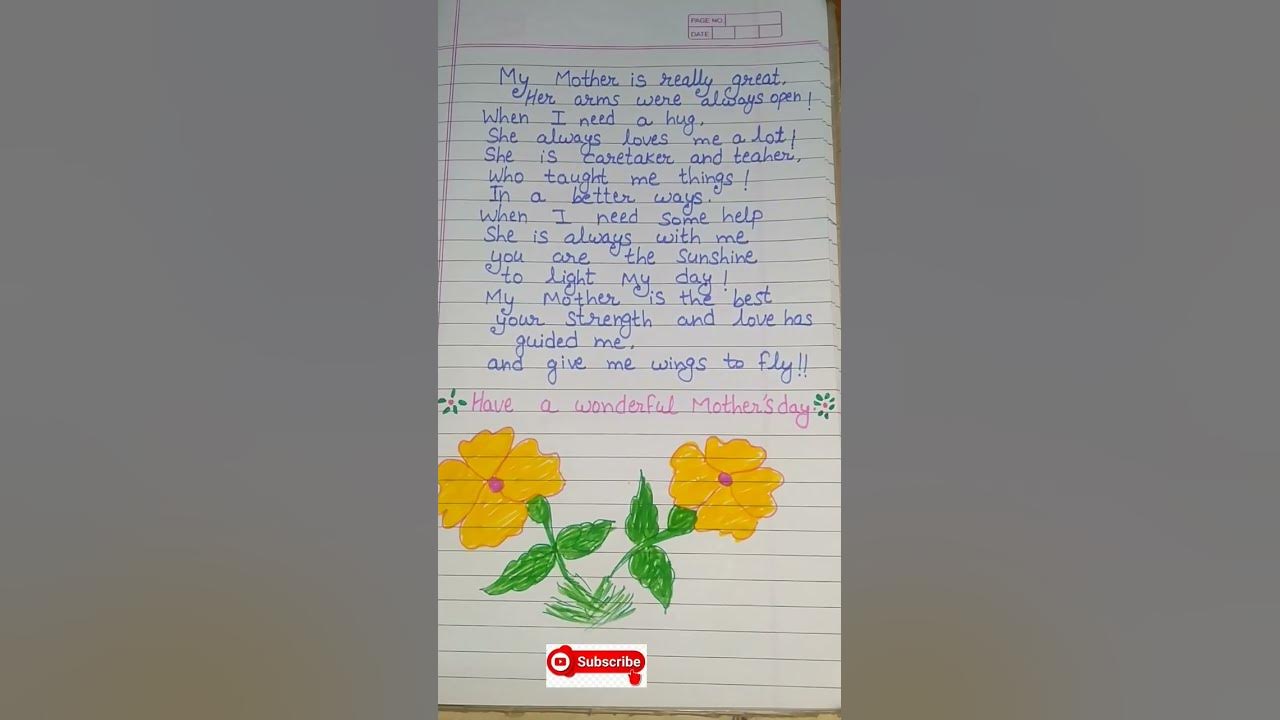 PAGE NO.
DATE
My Mother is really great.
Her arms were always open!
When I need a hug.
She always loves me a lot!
She is caretaker and teaher.
Who taught me things!
In a better ways.
When I need some help
She is always with me
you are the sunshine
to light My day!
My Mother is the best
your strength and love has
guided me.
and give me wings to fly!!
Have a wonderful Mother's day
Subscribe